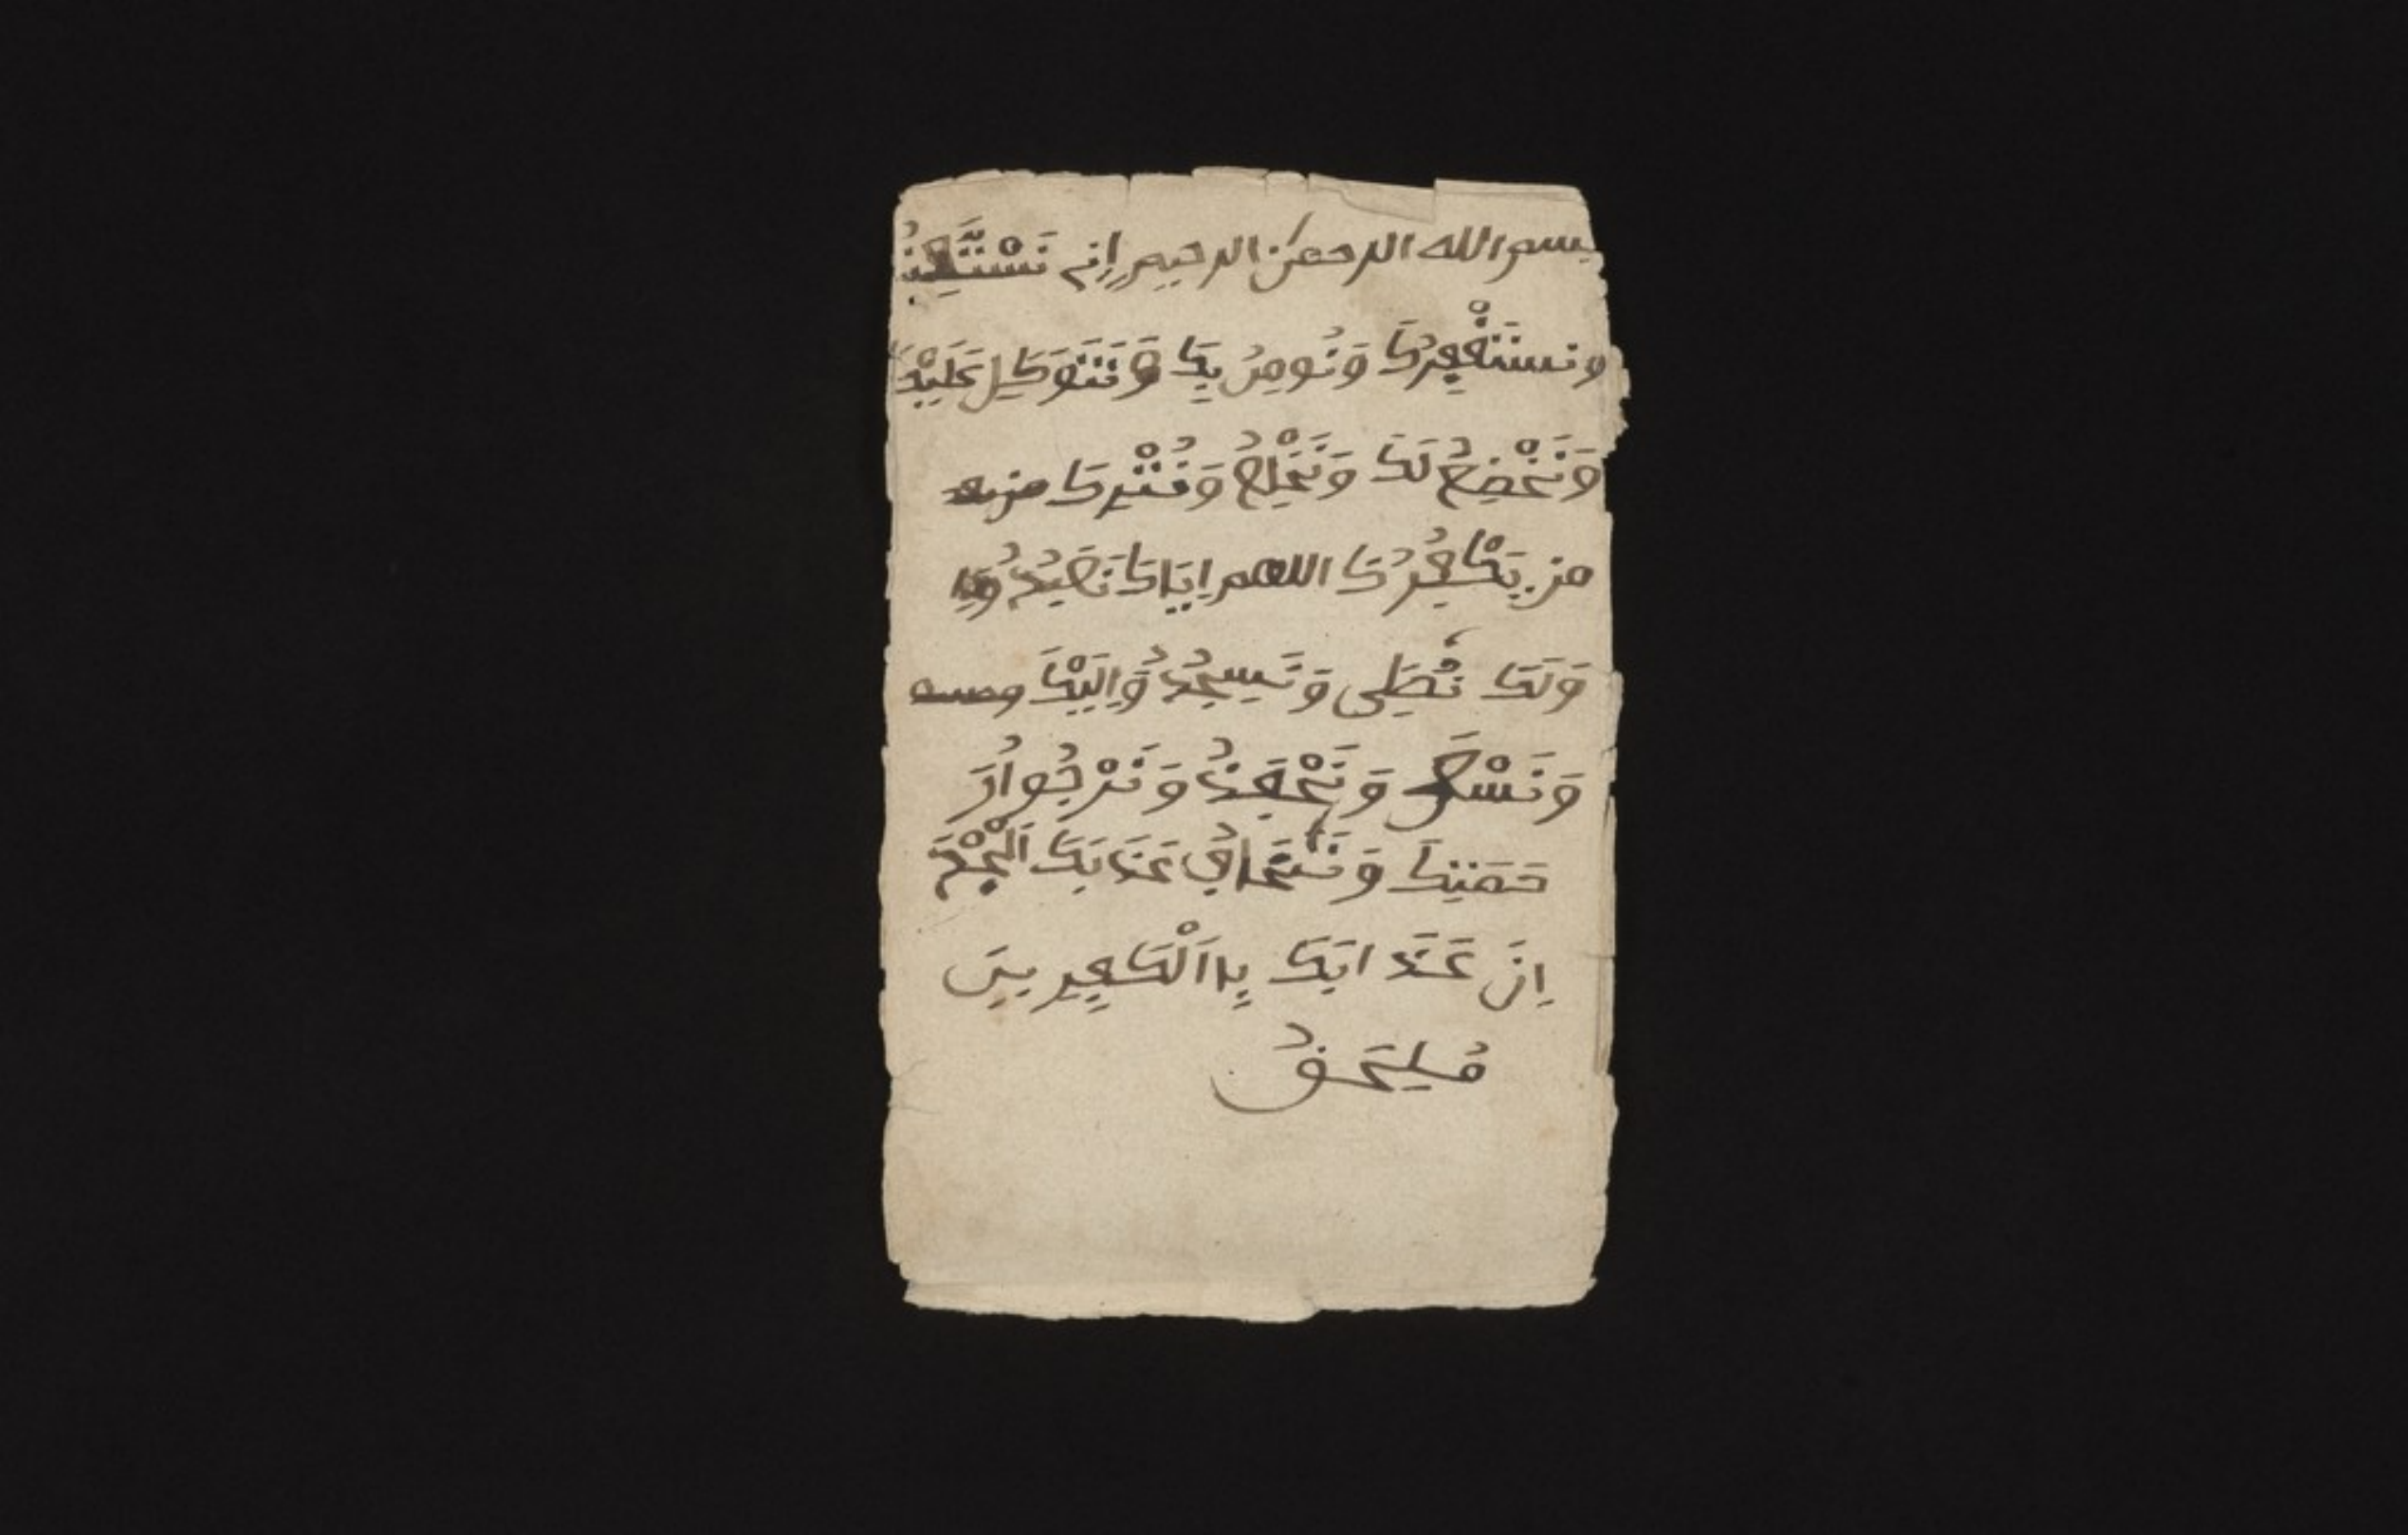 بسم الله الرحمن الرحيم اِنِ نَسْتَعِينُ
ونستَغْفِرُكَ وَنُومِنُ بِكَ وَنَتَوَكِلِ عَلَيْكَ
وَنَخْضِعُ لَكَ وَنَخْلِعُ وَنُتْرِكَ من
من يَكْفِرُكَ اللهم اِيَاكَ نَعْبُدُ
وَلَكَ نُصَلِى وَنَسِجُدُ وَاِلَيْكَ
وَنَسْعَى وَنَحْفِدُ وَنَرْجُوا رَ
حَمَتِكَ وَنَخَافُ عَذَابَكَ اَلْجِدَ
اِنَ عَذَ ابَكَ بِااَلْكَفِرِينَ
مُلِحَقُ